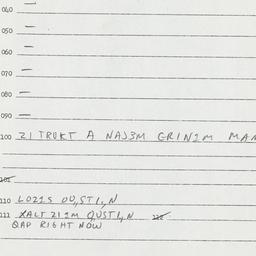 040 —
050 —
060 —
070 —
080 —
090 —
100 21 TRUKT A NAJ3M GRIN1M MAN
101
110 LO21S OU,ST1,N
111 XALT 211M QUST1,N 112
QAP RIGHT NOW